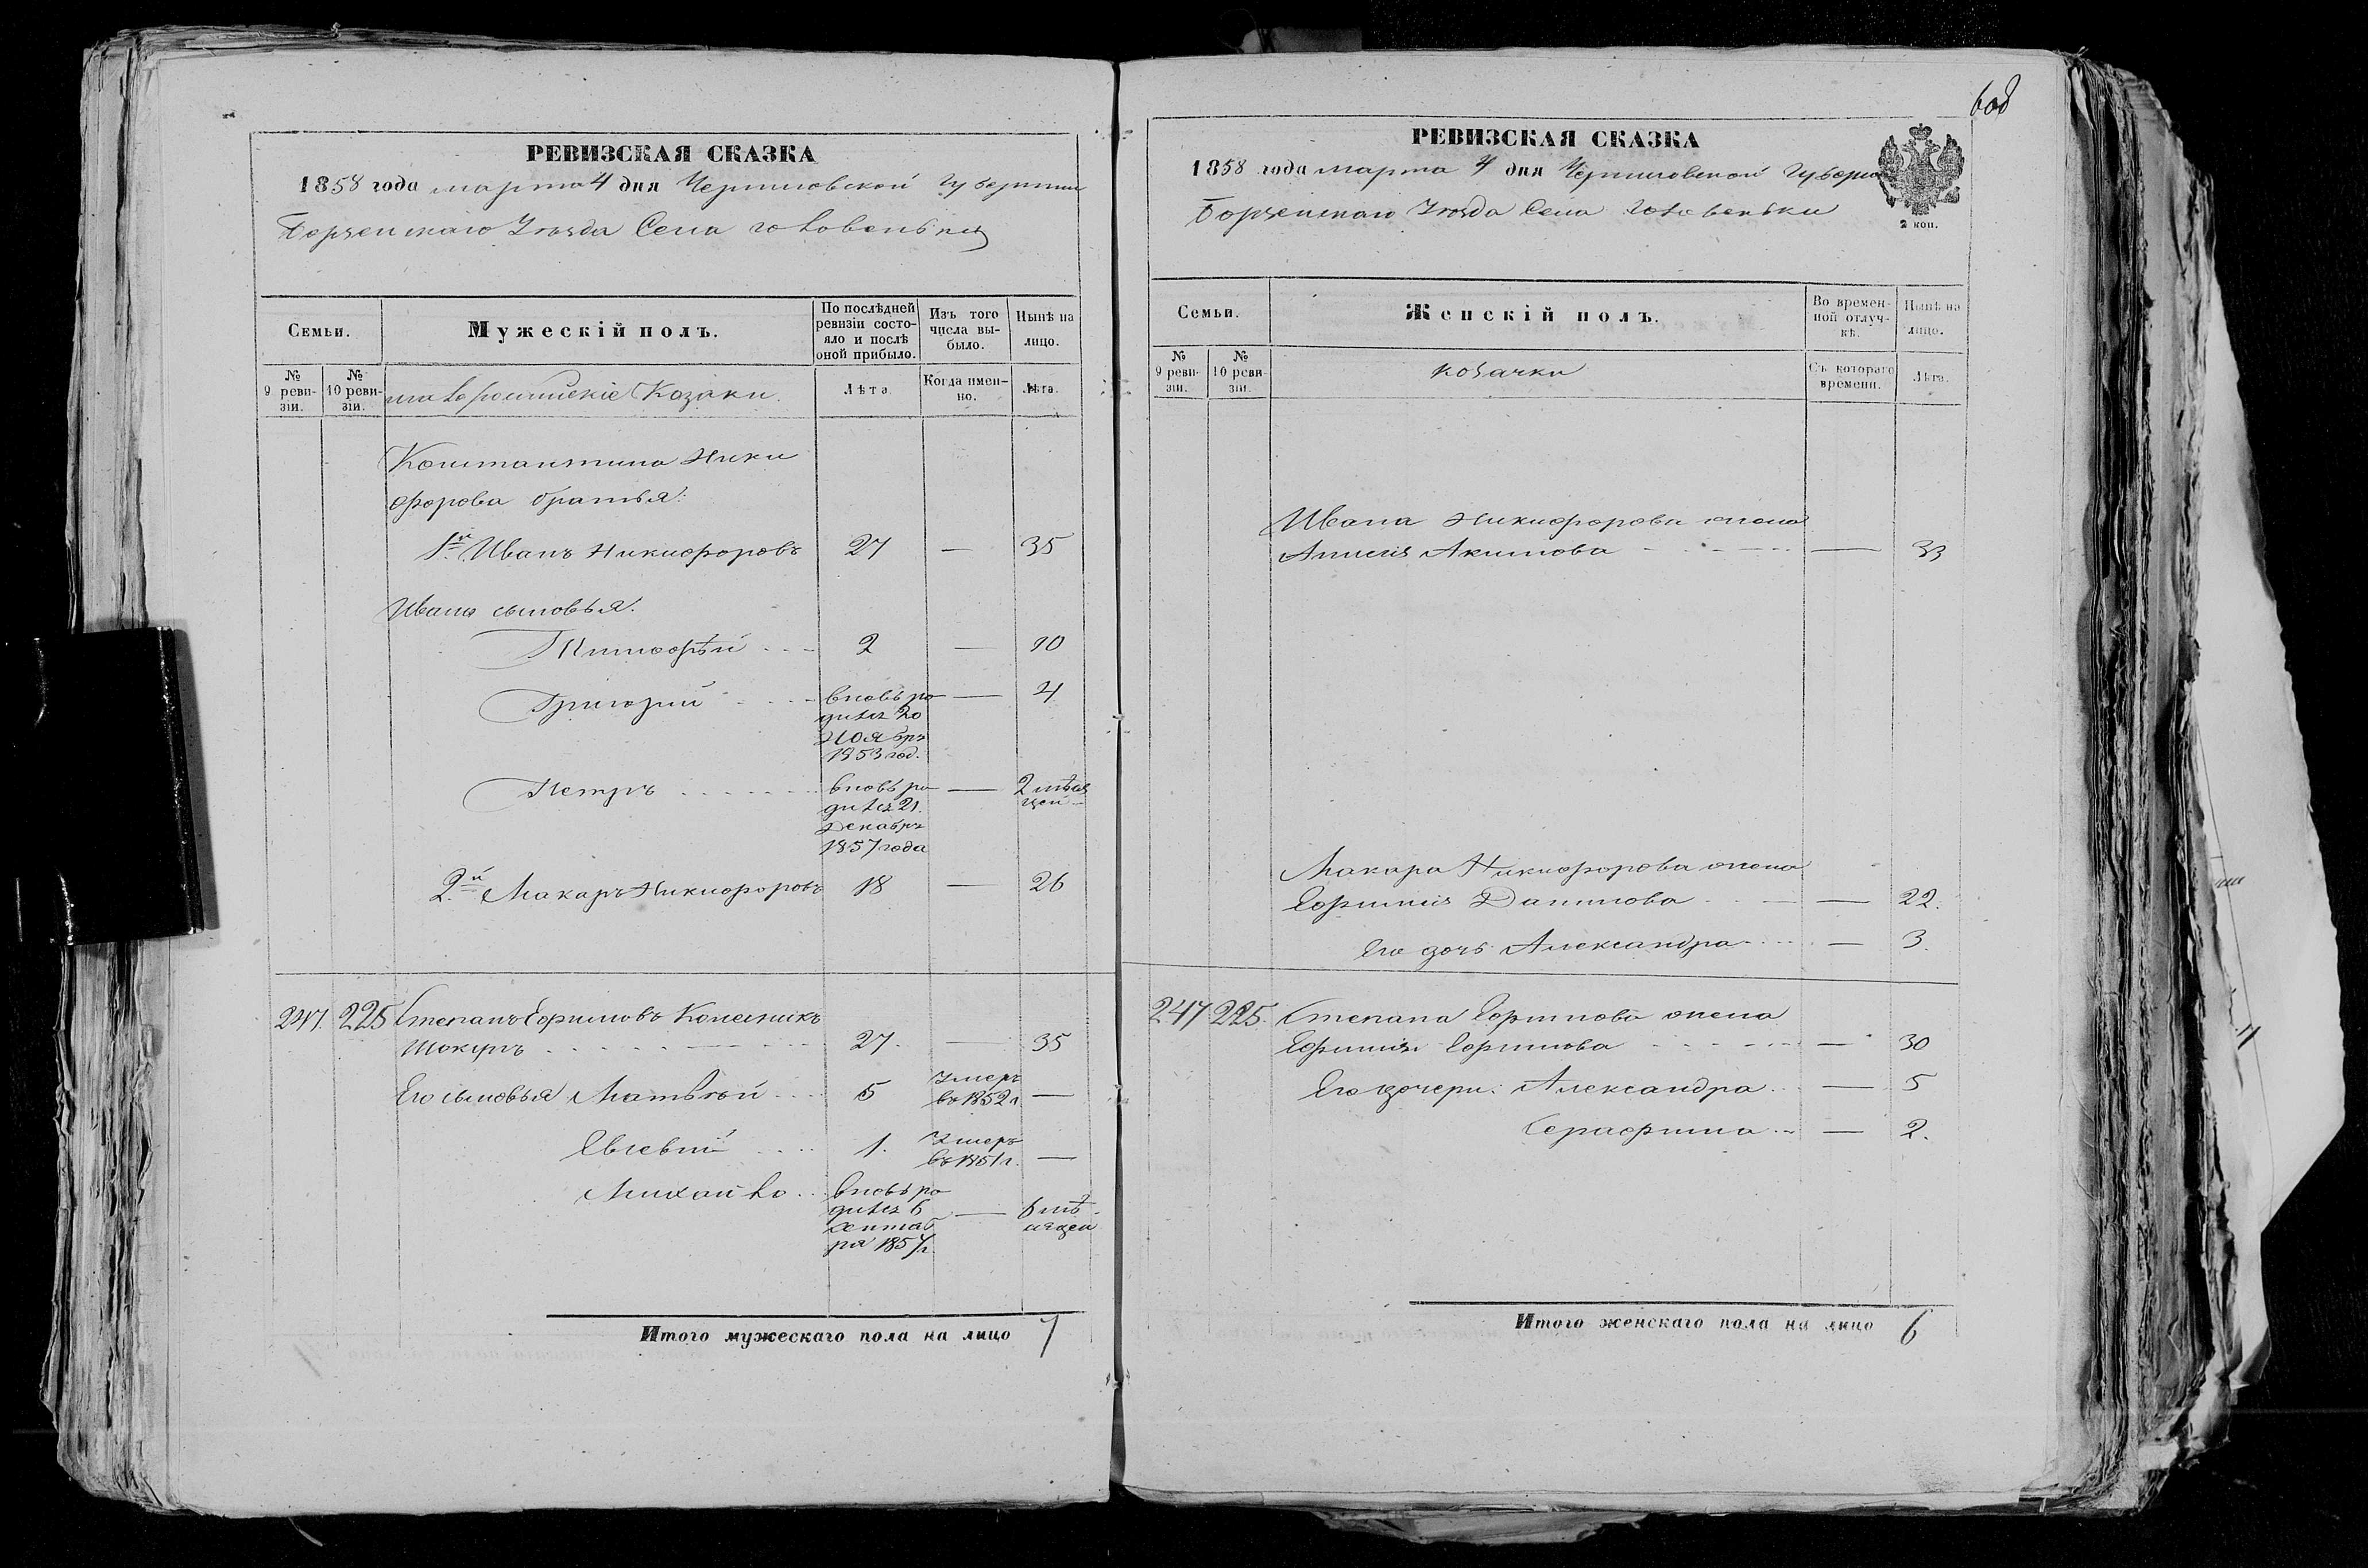 РЕВИЗСКАЯ СКАЗКА
1858 года марта 4 дня Черниговской губернии
Борзенскаго Уезда Села Головеньки
Семьи.
Мужескій полъ.
По послѣдней ревизіи состояло и послѣ оной прибыло.
Изъ того числа выбыло.
Нынѣ на лицо.
№ 9 ревизіи.
№ 10 ревизіи.
малороссийскіе Козаки.
Лѣта.
Когда именно.
Лѣта.
Константина Ники
форова братья:
1й Иванъ Никифоровъ 27 — 35
Ивана сыновья.
Тимофѣй 2 — 10
Григорий вновь ро — 4
дился 20
Ноября
1853 год.
Петръ вновь ро — 2 мѣся
дился 21. цей
Декабря
1857 года
2.й Макаръ Никифоровъ 18 — 26
247. 225 Степанъ Ефимовъ Колесникъ
Шокуръ 27. — 35
Его сыновья Матвѣй 5 Умеръ
въ 1852 г —
Евсевий 1. Умеръ
въ 1851 г. —
Михайло вновь ро
дился 6 — 6 мѣ
сентяб сяцей
ря 1857 г.
Итого мужескаго пола на лицо 7
608
РЕВИЗСКАЯ СКАЗКА
1858 года марта 4 дня Черниговской Губерн
Борзенскаго Уезда Села Головеньки
2 коп.
Семьи.
Женскій полъ.
Во временной отлучкѣ.
Нынѣ на лицо.
№ 9 ревизіи.
№ 10 ревизіи.
козачки
Съ котораго времени.
Лѣта.
Ивана Никифорова жена
Анисия Акимова — 33
Макара Никифорова жена
Ефимия Данилова — 22.
Его дочь Александра — 3.
247 225. Степана Ефимова жена
Ефимия Ефимова — 30
Его дочери: Александра — 5
Серафима — 2.
Итого женскаго пола на лицо 6